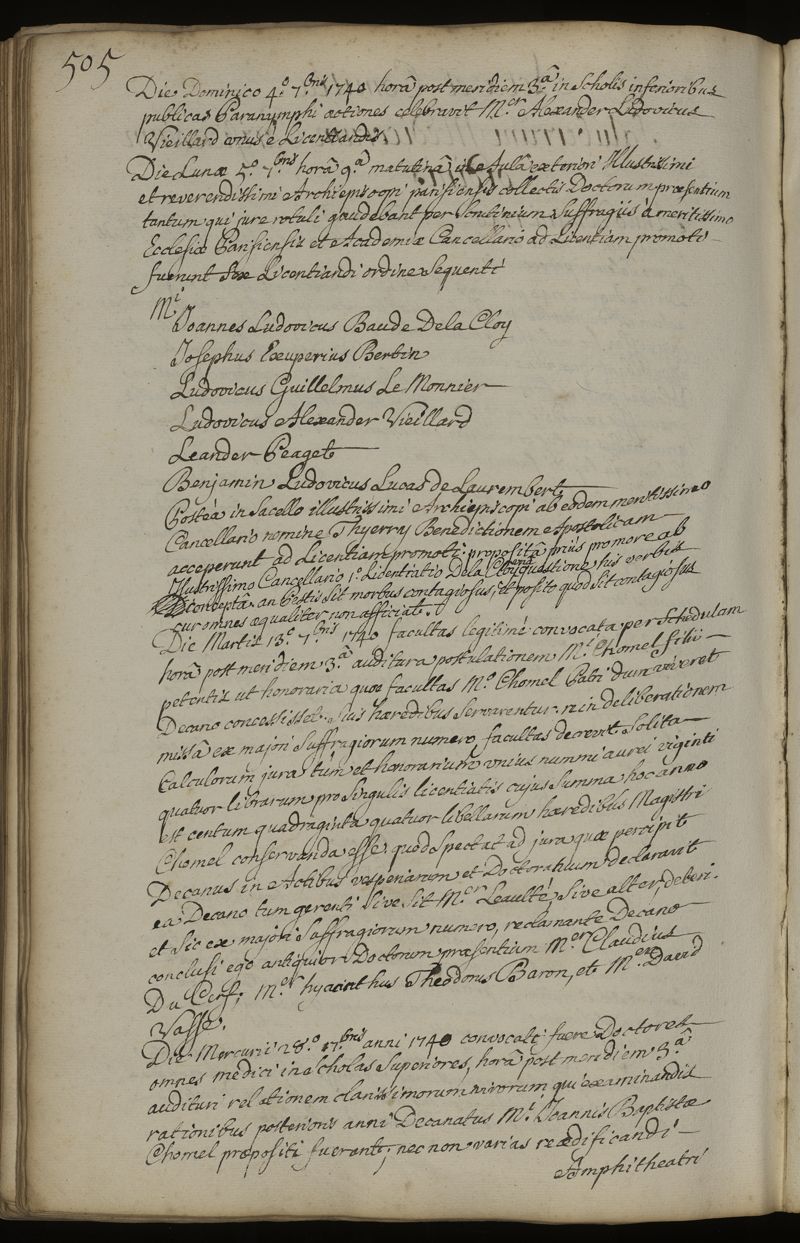 505
Die Dominico 4.º 7.bris 1740 horâ post meridiem 3.â in Scholis inferioribus
publicas Paranymphi actiones celebravit M.er Alexander Ludovicus
Vieillard unus è Licentiandis
Die Lunæ 5.º 7.bris horâ 9.â matutinâ in Aulâ exteriori Illustrissimi
et reverendissimi Archiepiscopi parisiensis collectis Doctorum præsentium
tantum qui jure rotuli gaudebant per scrutinium Suffragiis à meritissimo
Ecclesiæ Parisiensis et Academiæ Cancellario ad Licentiam promoti
fuerunt sex Licentiandi ordine sequenti
M.i
Joannes Ludovicus Baude De la Cloy
Josephus Exuperius Bertin
Ludovicus Guillelmus Le Monnier
Ludovicus Alexander Vieillard
Leander Peaget
Benjamin Ludovicus Lucas de Laurembert
Posteà in Sacello illustrissimi Archiepiscopi ab eodem meritissimo
Cancellario nomine Thyerry Benedictionem Apostolicam
acceperunt ad Licentiam promoti: propositâ prius pro more ab
Illustrissimo Cancellario 1.º Licentiatio De la Cloy quæstione his verbis
conceptâ. an Pestis sit morbus contagiosus, et posito quod sit contagiosus
cur omnes æqualiter non afficiat.
Die Martis 13.º 7.bris 1740 facultas legitimè convocata per schedulam
horâ post meridiem 3.â auditura postulationem M.i Chomel filii
petentis ut honoraria quæ facultas M.º Chomel Patri dum viveret
Decano concessisset suis hæredibus servarentur. re in deliberationem
missâ ex majori suffragiorum numero facultas decrevit solita
Calculorum jura tùm et honorarium unius nummi aurei viginti
quatuor librarum pro singulis licentiatis cujus summa hoc anno
est centum quadraginta quatuor libellarum hæredibus Magistri
Chomel conservanda esse. quod spectat ad jura quæ percipit
Decanus in Actibus vesperiarum et Doctoratuum declaravit
ea Decano tum gerenti sive sit M.er Leaulté, sive alter, deberi.
et sic ex majori suffragiorum numero, reclamante Decano
conclusi ego antiquior Doctorum præsentium M.er Claudius
Du Cerf; M.er hyacinthus Theodorus Baron, et M.er David
Vasse.
Die Mercurii 28.º 7.bris anni 1740 convocati fuere Doctores
omnes medici in scholas superiores, horâ post meridiem 3.â
audituri relationem clarissimorum virorum qui examinandis
rationibus posterioris anni Decanatus M.i Joannis Baptistæ
Chomel præpositi fuerant; nec non varias reædificandi
Amphitheatri